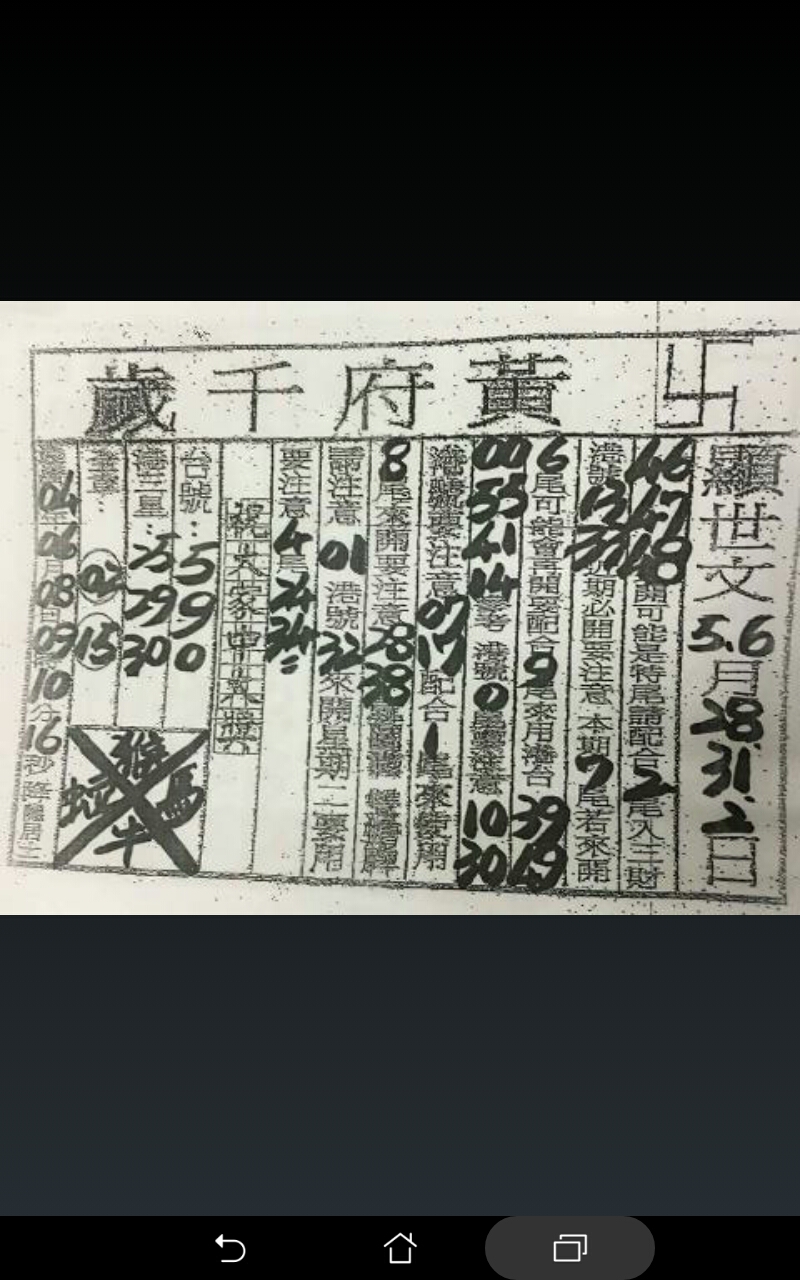 卐 黃府千歲
顯世文 5.6月28.31.2日
46 47 48 開可能是特尾請配合2尾入三財
港號 13 33 近期必開要注意 本期7尾若來開
6尾可能會再開要配合9尾來用港台 39 49
00 55 41 14 參考 港號0尾要注意 10 30
港號要注意 07 17 配合1尾來使用
8尾來開要注意 28 38
請注意 01 港號 32 來開星期二要用
要注意 4尾 24 34
祝大家中大獎
台號: 5 9 0
港三星: 25 29 30
全車: 02 15
猴 馬 蛇 牛
04年06月08日09時10分16秒